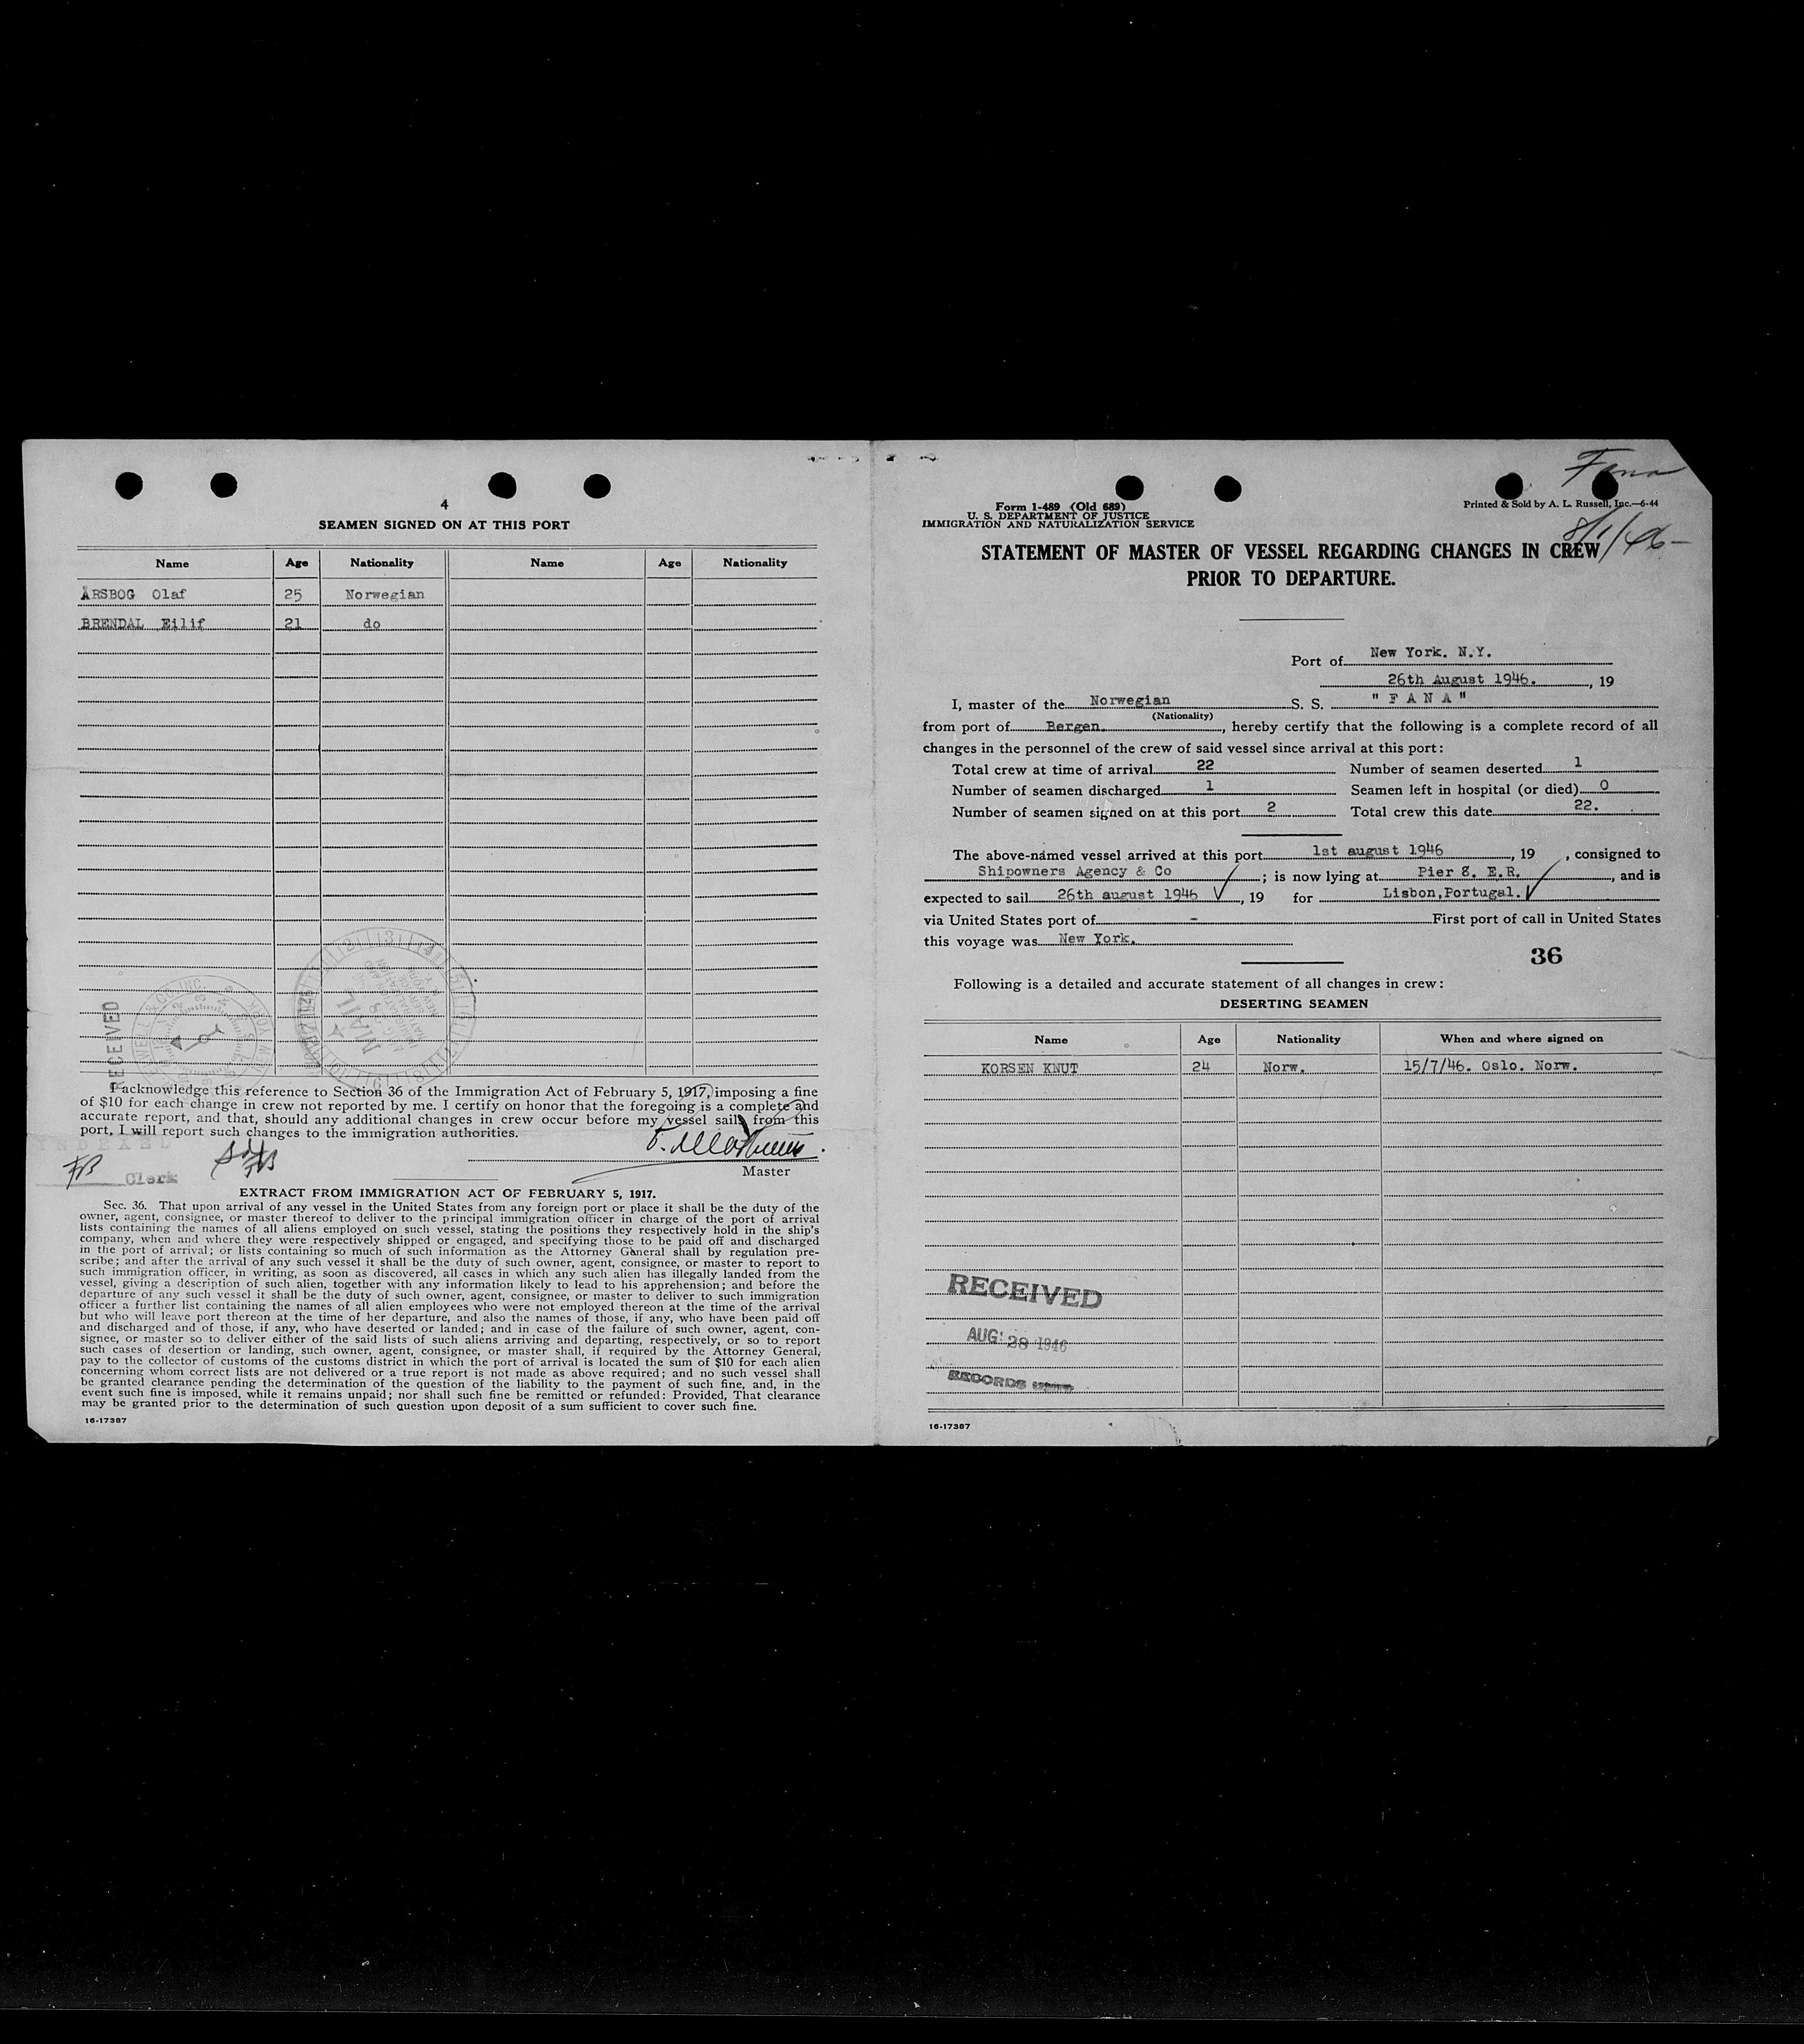 4
SEAMEN SIGNED ON AT THIS PORT
Name Age Nationality Name Age Nationality
ÅRSBOG Olaf 25 Norwegian
BRENDAL Eilif 21 do
RECEIVED
MAIL
I acknowledge this reference to Section 36 of the Immigration Act of February 5, 1917, imposing a fine
of $10 for each change in crew not reported by me. I certify on honor that the foregoing is a complete and
accurate report, and that, should any additional changes in crew occur before my vessel sails from this
port, I will report such changes to the immigration authorities.
Clerk
Master
EXTRACT FROM IMMIGRATION ACT OF FEBRUARY 5, 1917.
Sec. 36. That upon arrival of any vessel in the United States from any foreign port or place it shall be the duty of the
owner, agent, consignee, or master thereof to deliver to the principal immigration officer in charge of the port of arrival
lists containing the names of all aliens employed on such vessel, stating the positions they respectively hold in the ship's
company, when and where they were respectively shipped or engaged, and specifying those to be paid off and discharged
in the port of arrival; or lists containing so much of such information as the Attorney General shall by regulation pre-
scribe; and after the arrival of any such vessel it shall be the duty of such owner, agent, consignee, or master to report to
such immigration officer, in writing, as soon as discovered, all cases in which any such alien has illegally landed from the
vessel, giving a description of such alien, together with any information likely to lead to his apprehension; and before the
departure of any such vessel it shall be the duty of such owner, agent, consignee, or master to deliver to such immigration
officer a further list containing the names of all alien employees who were not employed thereon at the time of the arrival
but who will leave port thereon at the time of her departure, and also the names of those, if any, who have been paid off
and discharged and of those, if any, who have deserted or landed; and in case of the failure of such owner, agent, con-
signee, or master so to deliver either of the said lists of such aliens arriving and departing, respectively, or so to report
such cases of desertion or landing, such owner, agent, consignee, or master shall, if required by the Attorney General,
pay to the collector of customs of the customs district in which the port of arrival is located the sum of $10 for each alien
concerning whom correct lists are not delivered or a true report is not made as above required; and no such vessel shall
be granted clearance pending the determination of the question of the liability to the payment of such fine, and, in the
event such fine is imposed, while it remains unpaid; nor shall such fine be remitted or refunded: Provided, That clearance
may be granted prior to the determination of such question upon deposit of a sum sufficient to cover such fine.
16-17387
Fana
8/1/46-
Form 1-489 (Old 689)
U. S. DEPARTMENT OF JUSTICE
IMMIGRATION AND NATURALIZATION SERVICE
Printed & Sold by A. L. Russell, Inc.—6-44
STATEMENT OF MASTER OF VESSEL REGARDING CHANGES IN CREW
PRIOR TO DEPARTURE.
Port of New York. N.Y.
26th August 1946. , 19
I, master of the Norwegian S. S. " F A N A "
(Nationality)
from port of Bergen. , hereby certify that the following is a complete record of all
changes in the personnel of the crew of said vessel since arrival at this port:
Total crew at time of arrival 22 Number of seamen deserted 1
Number of seamen discharged 1 Seamen left in hospital (or died) 0
Number of seamen signed on at this port 2 Total crew this date 22.
The above-named vessel arrived at this port 1st august 1946 , 19 , consigned to
Shipowners Agency & Co ; is now lying at Pier 8. E.R. , and is
expected to sail 26th august 1946 , 19 for Lisbon,Portugal.
via United States port of - First port of call in United States
this voyage was New York.
36
Following is a detailed and accurate statement of all changes in crew:
DESERTING SEAMEN
Name Age Nationality When and where signed on
KORSEN KNUT 24 Norw. 15/7/46. Oslo. Norw.
RECEIVED
AUG 28 1946
RECORDS
16-17387